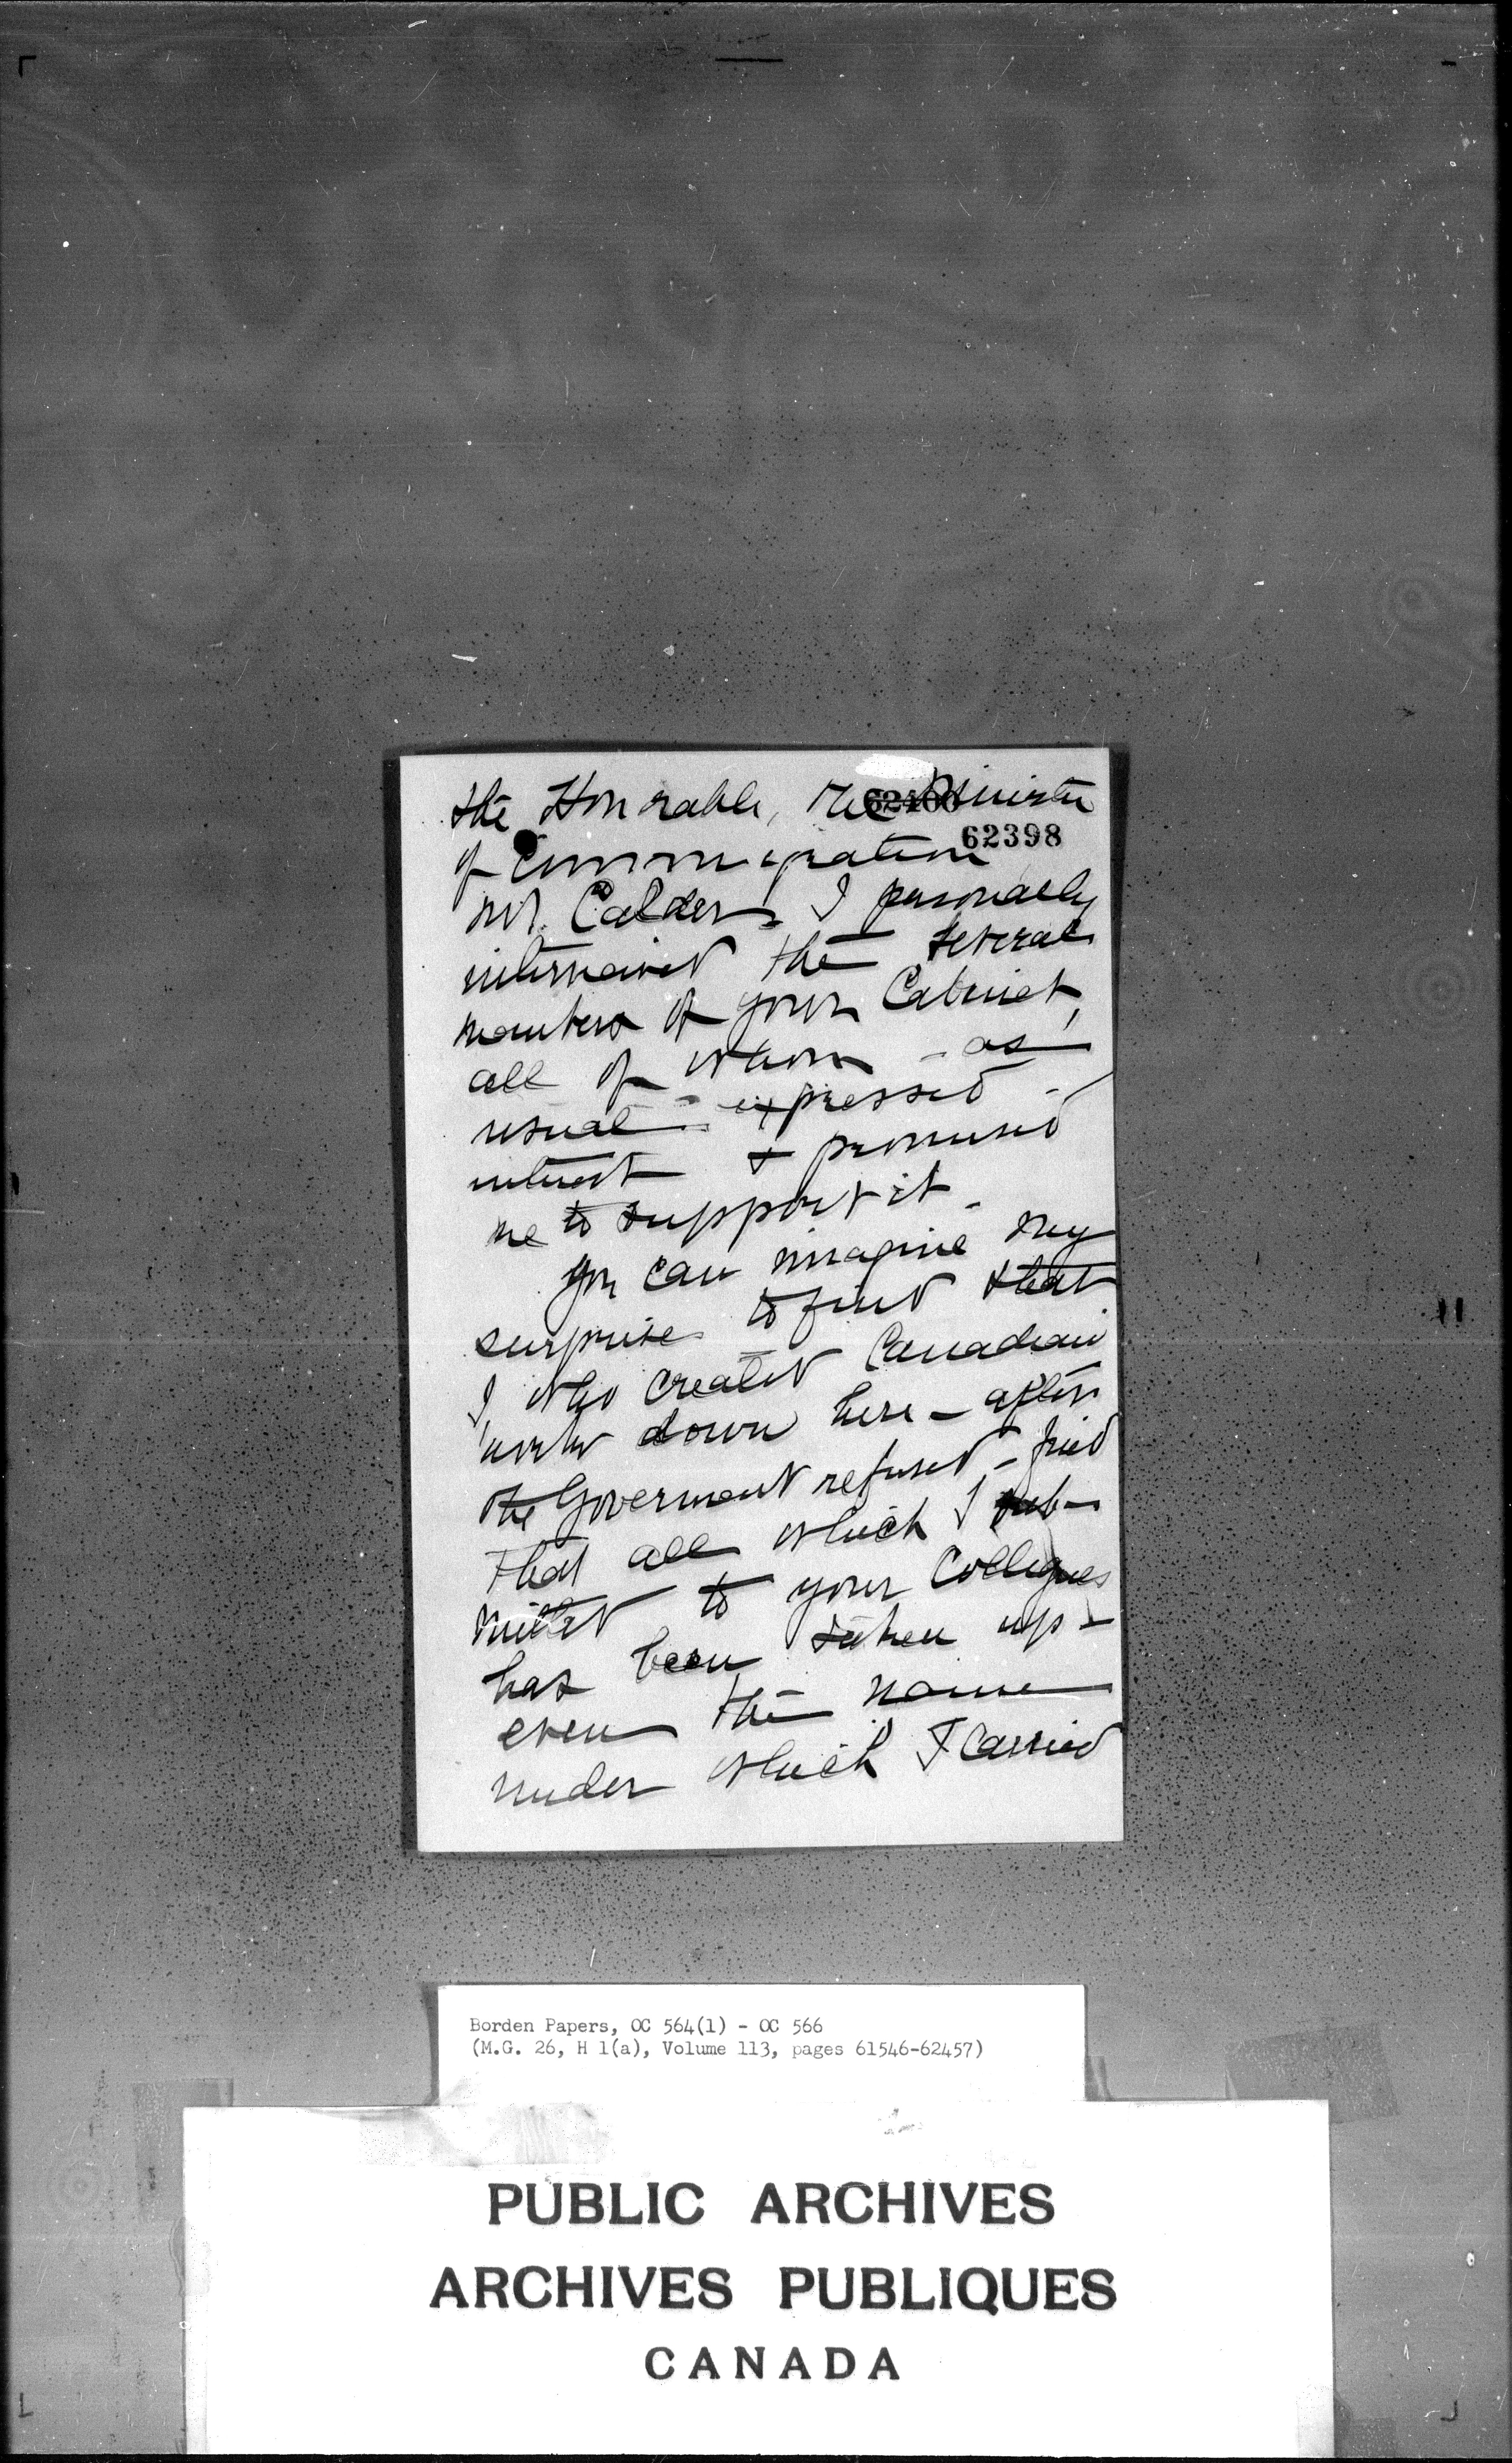 the Honorable, the Minister
62400
62398
of Immigration
Mr. Calder. I personally
interviewed the several
members of your Cabinet,
all of whom - as
usual - expressed -
interest & promised
me to support it -
You can imagine my
surprise to find that
I, who created Canadian
work down here - after
the Goverment refused - find
that all which I sub-
mitted to your Collegues
has been taken up -
even the name
under which I carried
Borden Papers, OC 564(1) - OC 566
(M.G. 26, H 1(a), Volume 113, pages 61546-62457)
PUBLIC ARCHIVES
ARCHIVES PUBLIQUES
CANADA